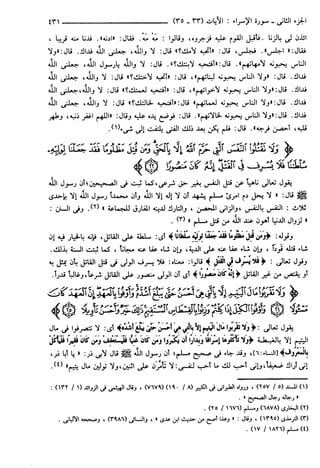 الجزء الثاني - سورة الإسراء : الآيات (٣٣ - ٣٥) ٤٣١
ائذن لي بالزنا . فأقبل القوم عليه فزجروه، وقالوا : مَهْ مَهْ. فقال: «ادنه». فدنا منه قريبا ،
فقال: «اجلس». فجلس، قال: «أتحبه لأمك؟» قال: لا والله، جعلني الله فداك. قال: «ولا
الناس يحبونه لأمهاتهم». قال: «أفتحبه لابنتك؟» قال: لا والله يارسول الله، جعلني الله
فداك. قال: «ولا الناس يحبونه لبناتهم»، قال: «أفتحبه لأختك؟» قال: لا والله، جعلني الله
فداك. قال: «ولا الناس يحبونه لأخواتهم»، قال: «أفتحبه لعمتك؟» قال: لا والله، جعلني الله
فداك. قال: «ولا الناس يحبونه لعماتهم» قال: «أفتحبه لخالتك؟» قال: لا والله، جعلني الله
فداك. قال: «ولا الناس يحبونه لخالاتهم». قال: فوضع يده عليه وقال: «اللهم اغفر ذنبه، وطهر
قلبه، أحصن فرجه». قال: فلم يكن بعد ذلك الفتى يلتفت إلى شيء(١).
وَلَا تَقْتُلُوا النَّفْسَ الَّتِي حَرَّمَ اللَّهُ إِلَّا بِالْحَقِّ وَمَن قُتِلَ مَظْلُومًا فَقَدْ جَعَلْنَا لِوَلِيِّهِ
سُلْطَانًا فَلَا يُسْرِف فِّي الْقَتْلِ إِنَّهُ كَانَ مَنصُورًا
يقول تعالى ناهياً عن قتل النفس بغير حق شرعي، كما ثبت في الصحيحين؛ أن رسول الله
ﷺ قال: «لا يحل دم امرئ مسلم يشهد أن لا إله إلا الله وأن محمداً رسول الله إلا بإحدى
ثلاث : النفس بالنفس، والزاني المحصن ، والتارك لدينه المفارق للجماعة»(٢). وفي السنن :
«لزوال الدنيا أهون عند الله من قتل مسلم»(٣).
وقوله: ﴿وَمَن قُتِلَ مَظْلُومًا فَقَدْ جَعَلْنَا لِوَلِيِّهِ سُلْطَانًا﴾ أي: سلطة على القاتل، فإنه بالخيار فيه إن
شاء قتله قوداً ، وإن شاء عفا عنه على الدية، وإن شاء عفا عنه مجاناً ، كما ثبتت السنة بذلك.
وقوله تعالى : ﴿فَلَا يُسْرِف فِّي الْقَتْلِ﴾ قالوا: معناه: فلا يسرف الولي في قتل القاتل بأن يمثل به
أو يقتص من غير القاتل ﴿إِنَّهُ كَانَ مَنصُورًا﴾ أي أن الولي منصور على القاتل شرعاً، وغالباً قدراً.
وَلَا تَقْرَبُوا مَالَ الْيَتِيمِ إِلَّا بِالَّتِي هِيَ أَحْسَنُ حَتَّىٰ يَبْلُغَ أَشُدَّهُ وَأَوْفُوا بِالْعَهْدِ إِنَّ الْعَهْدَ كَانَ
يقول تعالى : ﴿وَلَا تَقْرَبُوا مَالَ الْيَتِيمِ إِلَّا بِالَّتِي هِيَ أَحْسَنُ حَتَّىٰ يَبْلُغَ أَشُدَّهُ﴾ أي: لا تتصرفوا في مال
اليتيم إلا بالغبطة ﴿وَلَا تَأْكُلُوهَا إِسْرَافًا وَبِدَارًا أَن يَكْبَرُوا وَمَن كَانَ غَنِيًّا فَلْيَسْتَعْفِفْ وَمَن كَانَ فَقِيرًا فَلْيَأْكُلْ
بِالْمَعْرُوفِ﴾ [النساء:٦]، وقد جاء في صحيح مسلم؛ أن رسول الله ﷺ قال لأبي ذر: «يا أبا ذر،
إني أراك ضعيفا، وإني أحب لك ما أحب لنفسي: لا تأمرن على اثنين، ولا تولين مال يتيم»(٤).
(١) المسند (٥ / ٢٥٧) ، ورواه الطبراني في الكبير (٨ / ١٩٠) (٧٦٧٩) وقال الهيثمي في الزوائد (١ / ١٣٢) :
« رجاله رجال الصحيح » .
(٢) البخاري (٦٨٧٨) ومسلم (١٦٧٦ / ٢٥) .
(٣) الترمذي (١٣٩٥) ، وقال : « وهذا أصح من حديث ابن عدي » ، والنسائي (٣٩٨٦) ، وصححه الألباني .
(٤) مسلم (١٨٢٦ / ١٧) .